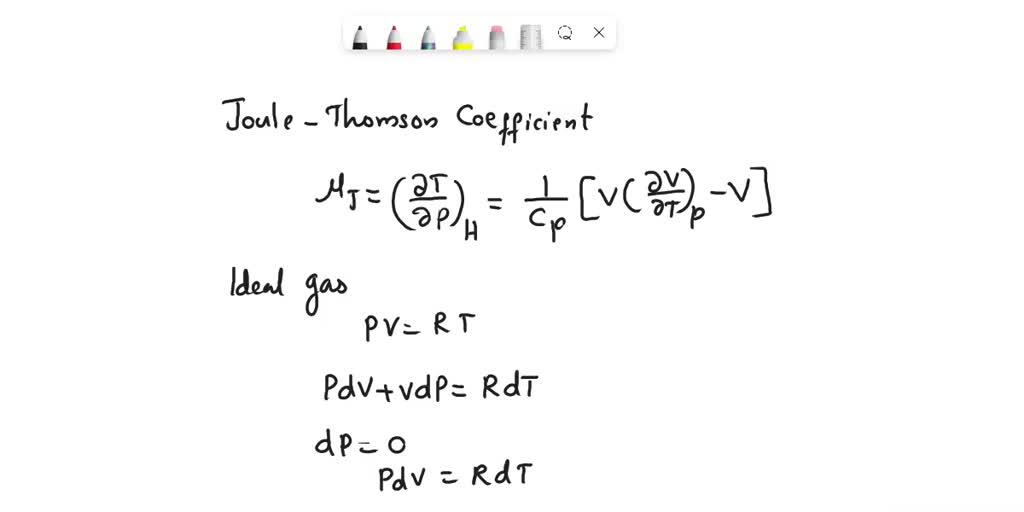 Joule-Thomson Coefficient
μ_J = (∂T/∂P)_H = 1/C_p [V(∂V/∂T)_P - V]
Ideal gas
PV = RT
PdV + VdP = RdT
dP = 0
PdV = RdT